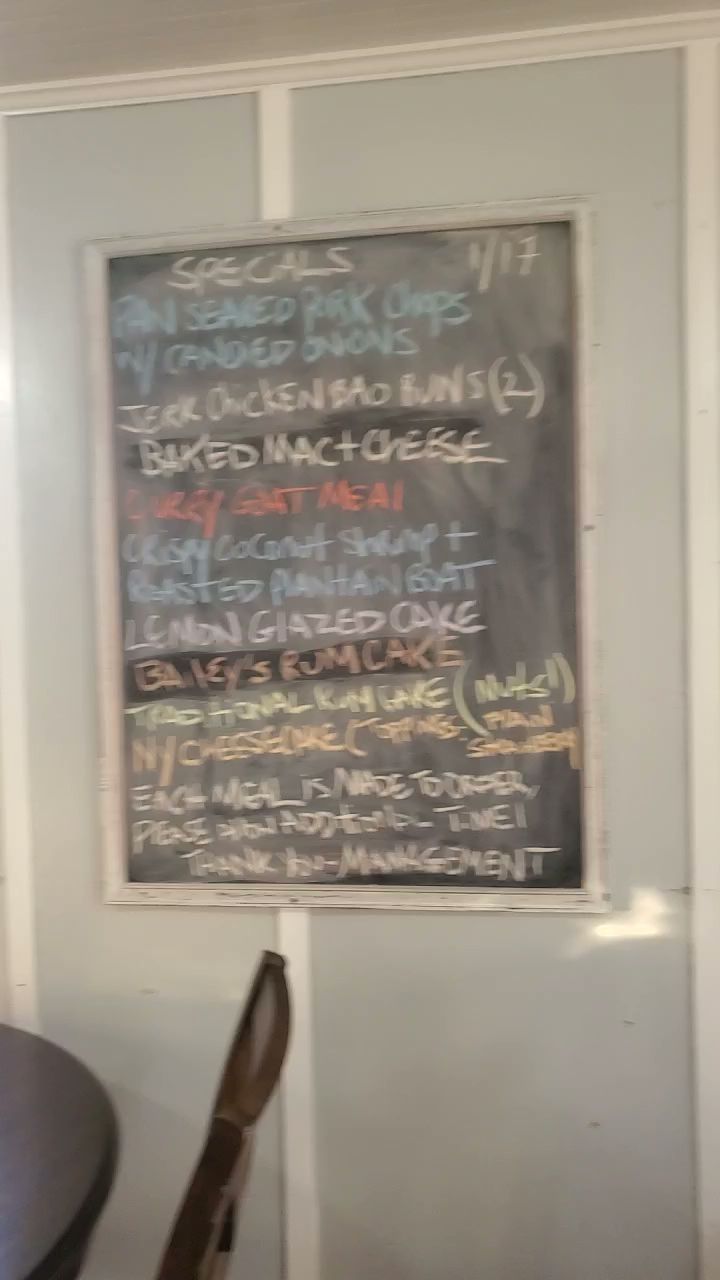 SPECIALS 1/17
PAN SEARED PORK CHOPS
W/ CANDIED ONIONS
JERK CHICKEN BAO BUNS (2)
BAKED MAC + CHEESE
CURRY GOAT MEAL
CRISPY COCONUT SHRIMP +
ROASTED PLANTAIN BOAT
LEMON GLAZED CAKE
BAILEY'S RUM CAKE
TRADITIONAL RUM CAKE (NUTS!)
NY CHEESECAKE (TOPPINGS: PLAIN
STRAWBERRY
EACH MEAL IS MADE TO ORDER,
PLEASE ALLOW ADDITIONAL TIME!
THANK YOU - MANAGEMENT